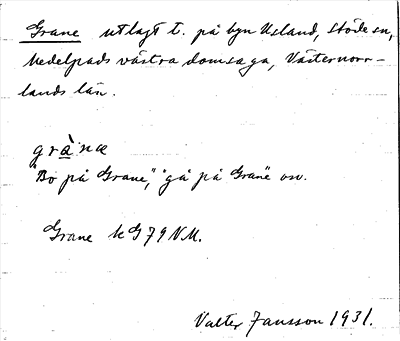 Grane utlagt t. på byn Usland, Stöde sn,
Medelpads västra domsaga, Västernorr-
lands län.
gràna
"Bo på Grane", "gå på Grane" osv.
Grane kG79NM.
Valter Jansson 1931.